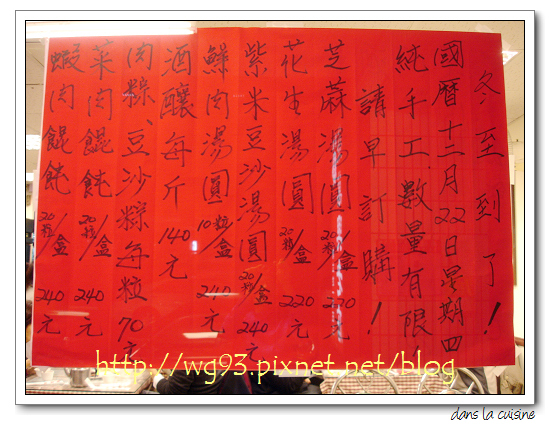 冬至到了!
國曆十二月22日星期四
純手工數量有限
請早訂購!
芝蔴湯圓20粒/盒220元
花生湯圓20粒/盒220元
紫米豆沙湯圓20粒/盒240元
鮮肉湯圓10粒/盒240元
酒釀每斤140元
肉粽、豆沙粽每粒70元
菜肉餛飩20粒/盒240元
蝦肉餛飩20粒/盒240元
http://wg93.pixnet.net/blog
dans la cuisine